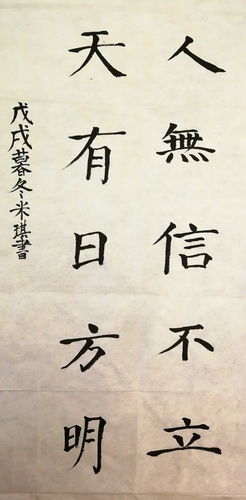 人無信不立
天有日方明
戊戌暮冬米琪書